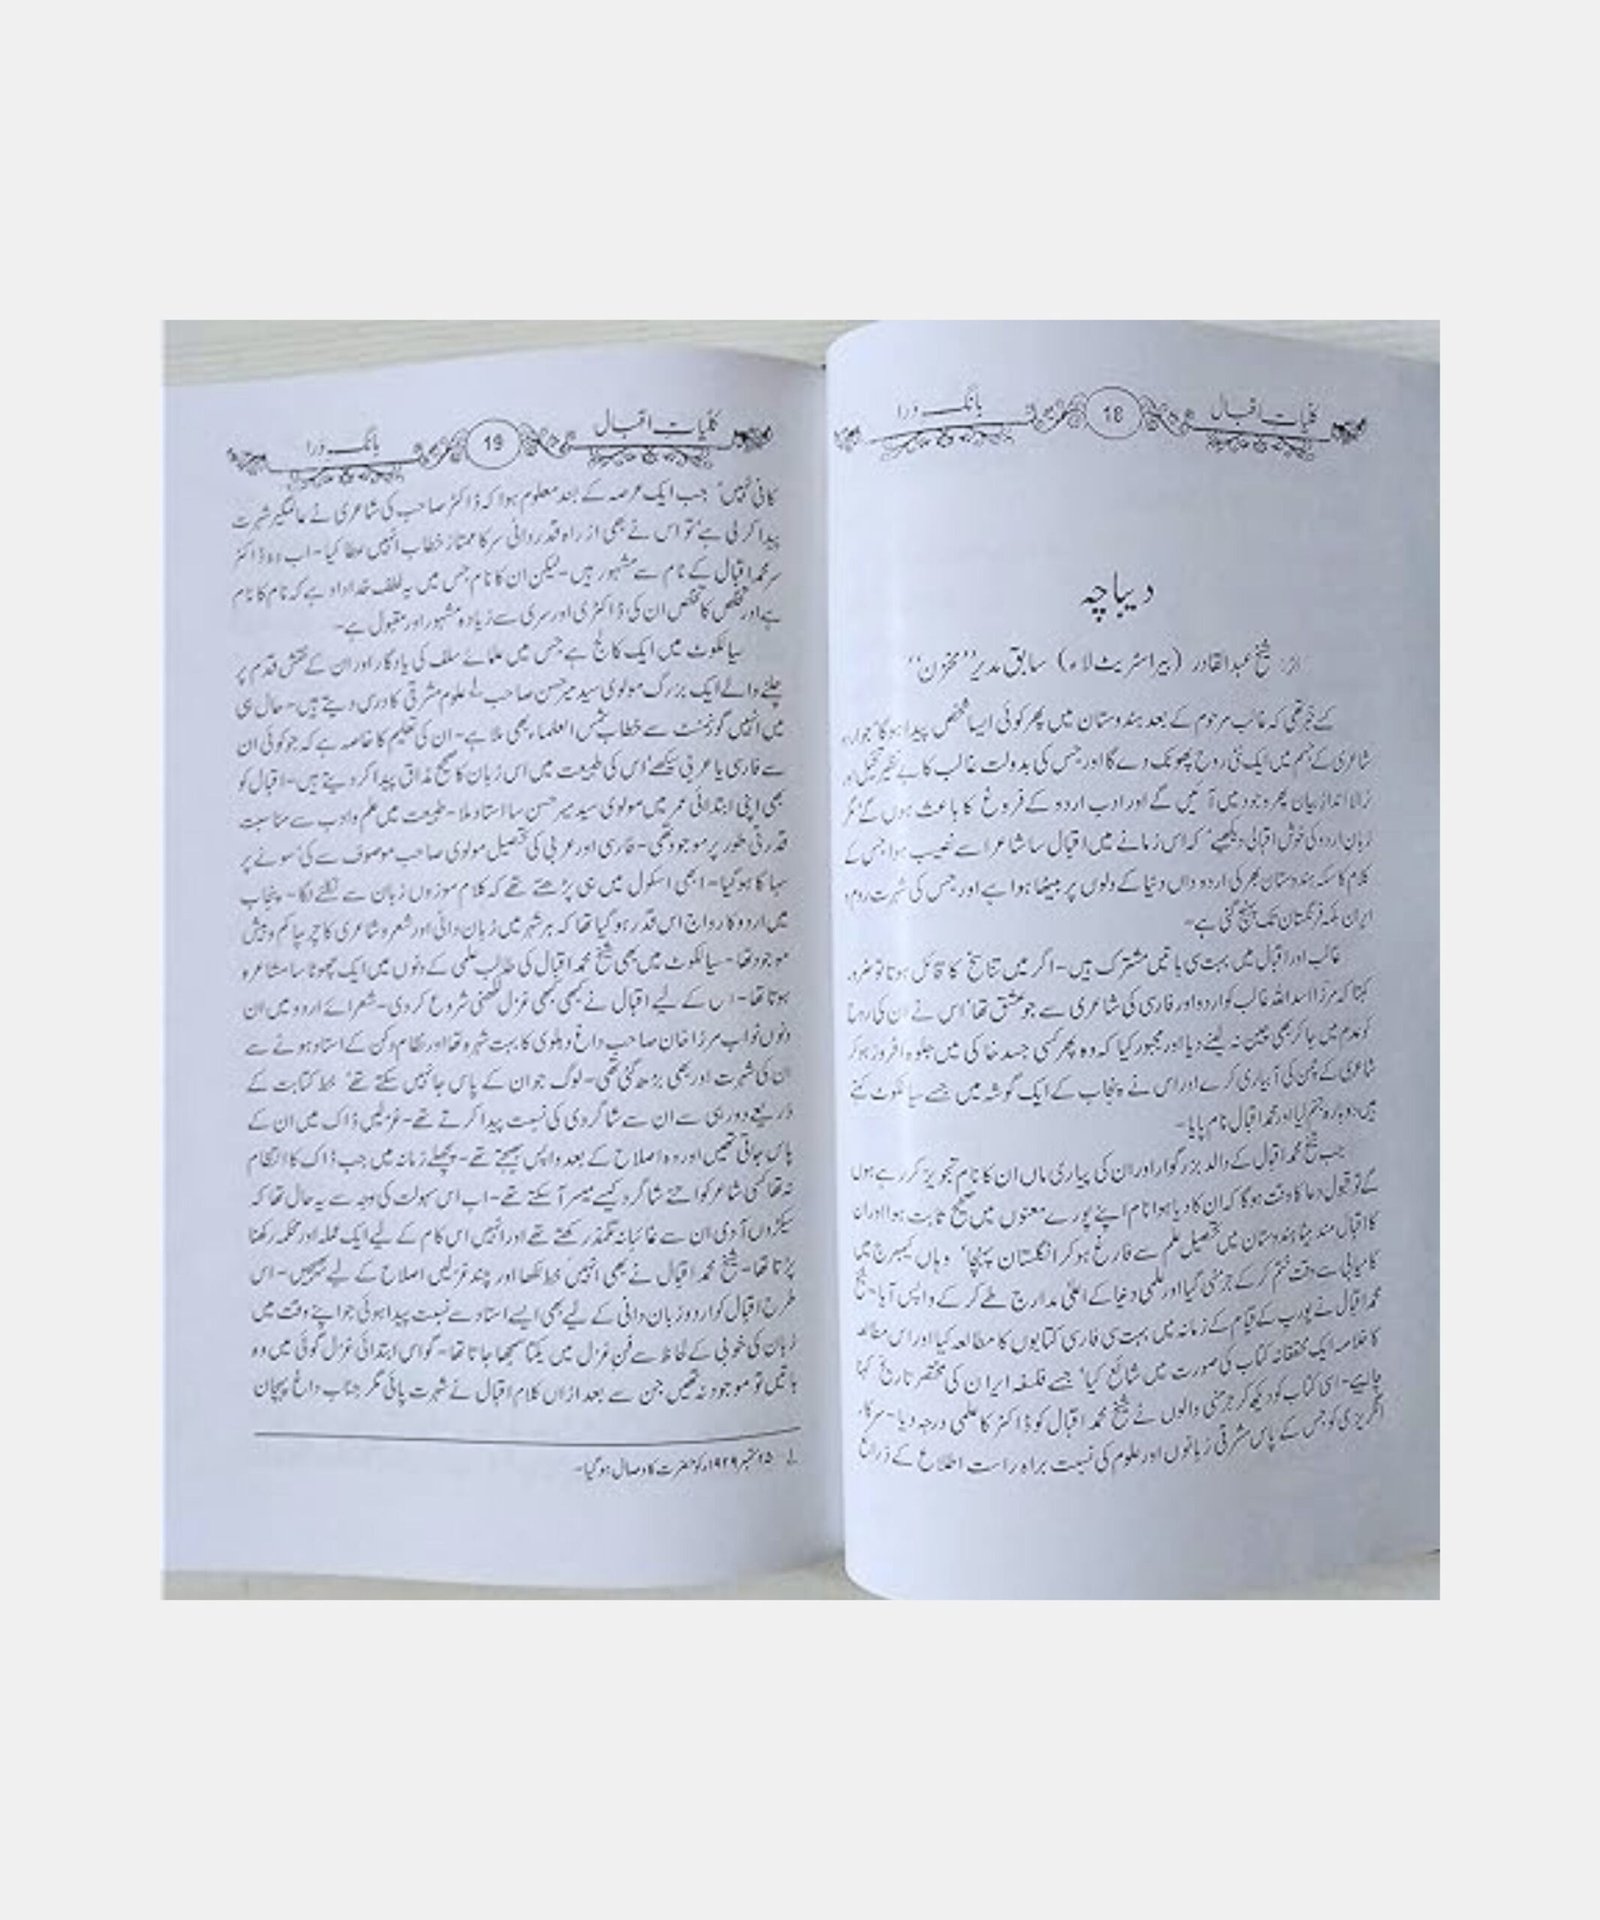 کلیات اقبال 18 بانگ درا
دیباچہ
از: شیخ عبدالقادر (بیرسٹریٹ لاء) سابق مدیر ”مخزن“
کسے خبر تھی کہ غالب مرحوم کے بعد ہندوستان میں پھر کوئی ایسا شخص پیدا ہوگا‘ جو اردو
شاعری کے جسم میں ایک نئی روح پھونک دے گا اور جس کی بدولت غالب کا بے نظیر تخیل اور
نرالا انداز بیان پھر وجود میں آئیں گے اور ادب اردو کے فروغ کا باعث ہوں گے‘ مگر
زبان اردو کی خوش اقبالی دیکھیے‘ کہ اس زمانے میں اقبال سا شاعر اسے نصیب ہوا جس کے
کلام کا سکہ ہندوستان بھر کی اردو داں دنیا کے دلوں پر بیٹھا ہوا ہے اور جس کی شہرت روم و
ایران بلکہ فرنگستان تک پہنچ گئی ہے۔
غالب اور اقبال میں بہت سی باتیں مشترک ہیں۔ اگر میں تناسخ کا قائل ہوتا تو ضرور
کہتا کہ مرزا اسد اللہ غالب کو اردو اور فارسی کی شاعری سے جو عشق تھا‘ اس نے ان کی روح
کو عدم میں جا کر بھی چین نہ لینے دیا اور مجبور کیا کہ وہ پھر کسی جسد خاکی میں جلوہ افروز ہو کر
شاعری کے چمن کی آبیاری کرے اور اس نے پنجاب کے ایک گوشہ میں جسے سیالکوٹ کہتے
ہیں دوبارہ جنم لیا اور محمد اقبال نام پایا۔
جب شیخ محمد اقبال کے والد بزرگوار اور ان کی پیاری ماں ان کا نام تجویز کر رہے ہوں
گے تو قبول دعا کا وقت ہوگا کہ ان کا دیا ہوا نام اپنے پورے معنوں میں صحیح ثابت ہوا اور ان
کا اقبال مند بیٹا ہندوستان میں تحصیل علم سے فارغ ہو کر انگلستان پہنچا‘ وہاں کیمبرج میں
کامیابی سے وقت ختم کر کے جرمنی گیا اور علمی دنیا کے اعلیٰ مدارج طے کر کے واپس آیا۔ شیخ
محمد اقبال نے یورپ کے قیام کے زمانہ میں بہت سی فارسی کتابوں کا مطالعہ کیا اور اس مطالعہ
کا خلاصہ ایک محققانہ کتاب کی صورت میں شائع کیا‘ جسے فلسفہ ایران کی مختصر تاریخ کہنا
چاہیے۔ اسی کتاب کو دیکھ کر جرمنی والوں نے شیخ محمد اقبال کو ڈاکٹر کا علمی درجہ دیا۔ سرکار
انگریزی کو جس کے پاس مشرقی زبانوں اور علوم کی نسبت براہ راست اطلاع کے ذرائع
کلیات اقبال 19 بانگ درا
کافی نہیں‘ جب ایک عرصہ کے بعد معلوم ہوا کہ ڈاکٹر صاحب کی شاعری نے عالمگیر شہرت
پیدا کر لی ہے‘ تو اس نے بھی از راہ قدردانی سر کا ممتاز خطاب انہیں عطا کیا۔ اب وہ ڈاکٹر
سر محمد اقبال کے نام سے مشہور ہیں۔ لیکن ان کا نام جس میں یہ لطف خداداد ہے کہ نام کا نام
ہے اور تخلص کا تخلص ان کی ڈاکٹری اور سری سے زیادہ مشہور اور مقبول ہے۔
سیالکوٹ میں ایک کالج ہے جس میں علمائے سلف کی یادگار اور ان کے نقش قدم پر
چلنے والے ایک بزرگ مولوی سید میر حسن صاحب لے علوم مشرقی کا درس دیتے ہیں۔ حال ہی
میں انہیں گورنمنٹ سے خطاب شمس العلماء بھی ملا ہے۔ ان کی تعلیم کا خاصہ ہے کہ جو کوئی ان
سے فارسی یا عربی سیکھے‘ اس کی طبیعت میں اس زبان کا صحیح مذاق پیدا کر دیتے ہیں۔ اقبال کو
بھی اپنی ابتدائی عمر میں مولوی سید میر حسن سا استاد ملا۔ طبیعت میں علم و ادب سے مناسبت
قدرتی طور پر موجود تھی۔ فارسی اور عربی کی تحصیل مولوی صاحب موصوف سے کی‘ سونے پر
سہاگا ہو گیا۔ ابھی اسکول میں ہی پڑھتے تھے کہ کلام موزوں زبان سے نکلنے لگا۔ پنجاب
میں اردو کا رواج اس قدر ہو گیا تھا کہ ہر شہر میں زبان دانی اور شعر و شاعری کا چرچا کم و بیش
موجود تھا۔ سیالکوٹ میں بھی شیخ محمد اقبال کی طالب علمی کے دنوں میں ایک چھوٹا سا مشاعرہ
ہوتا تھا۔ اس کے لیے اقبال نے کبھی کبھی غزل لکھنی شروع کر دی۔ شعرائے اردو میں ان
دنوں نواب مرزا خان صاحب داغ دہلوی کا بہت شہرہ تھا اور نظام دکن کے استاد ہونے سے
ان کی شہرت اور بھی بڑھ گئی تھی۔ لوگ جو ان کے پاس جا نہیں سکتے تھے‘ خط کتابت کے
ذریعے دور ہی سے ان سے شاگردی کی نسبت پیدا کرتے تھے۔ غزلیں ڈاک میں ان کے
پاس جاتی تھیں اور وہ اصلاح کے بعد واپس بھیجتے تھے۔ پچھلے زمانہ میں جب ڈاک کا انتظام
نہ تھا کسی شاعر کو اتنے شاگرد کیسے میسر آ سکتے تھے۔ اب اس سہولت کی وجہ سے یہ حال تھا کہ
سیکڑوں آدمی ان سے غائبانہ تلمذ رکھتے تھے اور انہیں اس کام کے لیے ایک عملہ اور محکمہ رکھنا
پڑتا تھا۔ شیخ محمد اقبال نے بھی انہیں خط لکھا اور چند غزلیں اصلاح کے لیے بھیجیں۔ اس
طرح اقبال کو اردو زبان دانی کے لیے بھی ایسے استاد سے نسبت پیدا ہوئی جو اپنے وقت میں
زبان کی خوبی کے لحاظ سے فن غزل میں یکتا سمجھا جاتا تھا۔ گو اس ابتدائی غزل گوئی میں وہ
باتیں تو موجود نہ تھیں جن سے بعد ازاں کلام اقبال نے شہرت پائی مگر جناب داغ پہچان
لے ۲۵ ستمبر ۱۹۲۹ء کو حضرت کا وصال ہو گیا۔